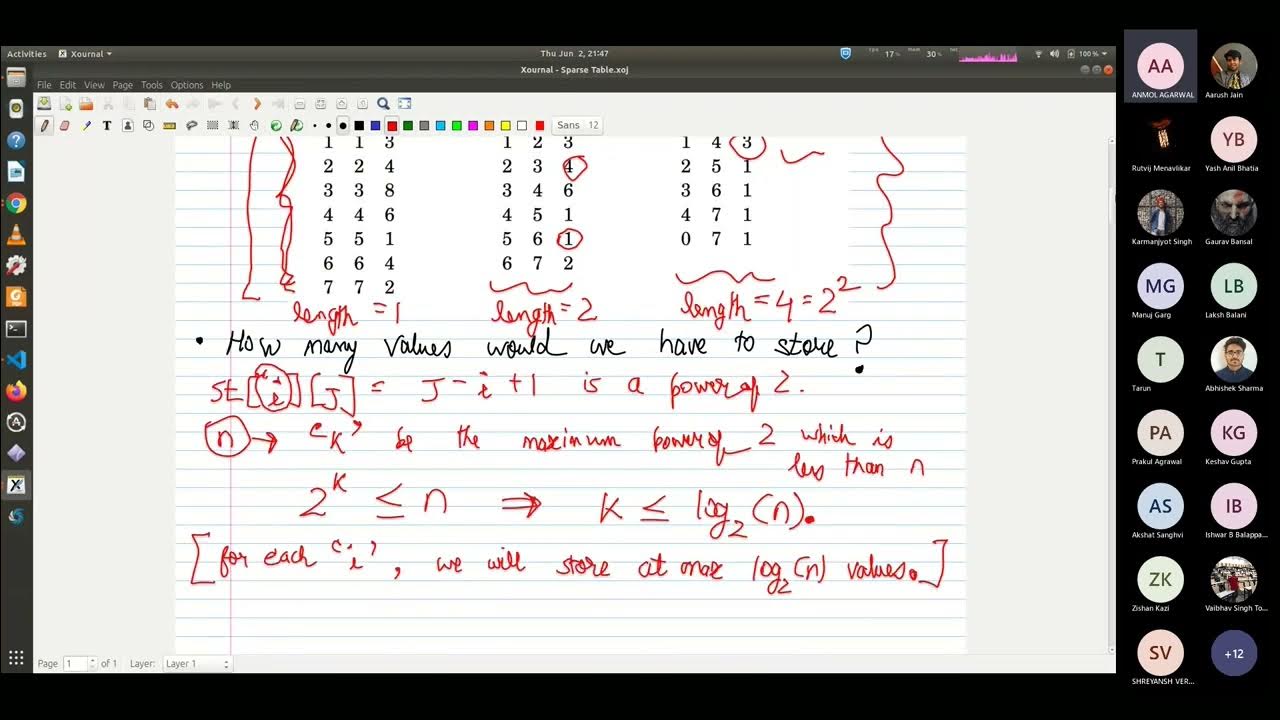 Activities Xournal Thu Jun 2, 21:47 17% 30% 100%
Xournal - Sparse Table.xoj
File Edit View Page Tools Options Help
Sans 12
1 1 3 1 2 3 1 4 3
2 2 4 2 3 4 2 5 1
3 3 8 3 4 6 3 6 1
4 4 6 4 5 1 4 7 1
5 5 1 5 6 1 0 7 1
6 6 4 6 7 2
7 7 2
length = 1 length = 2 length = 4 = 2²
• How many values would we have to store ?
st["i"][J] = J - i + 1 is a power of 2.
n → 'K' be the maximum power of 2 which is
less than n
2^K ≤ n ⇒ K ≤ log₂(n).
[for each "i", we will store at max log₂(n) values.]
Page 1 of 1 Layer: Layer 1
AA
ANMOL AGARWAL Aarush Jain
YB
Rutvij Menavlikar Yash Anil Bhatia
Karmanjyot Singh Gaurav Bansal
MG LB
Manuj Garg Laksh Balani
T
Tarun Abhishek Sharma
PA KG
Prakul Agrawal Keshav Gupta
AS IB
Akshat Sanghvi Ishwar B Balappa...
ZK
Zishan Kazi Vaibhav Singh To...
SV +12
SHREYANSH VER...